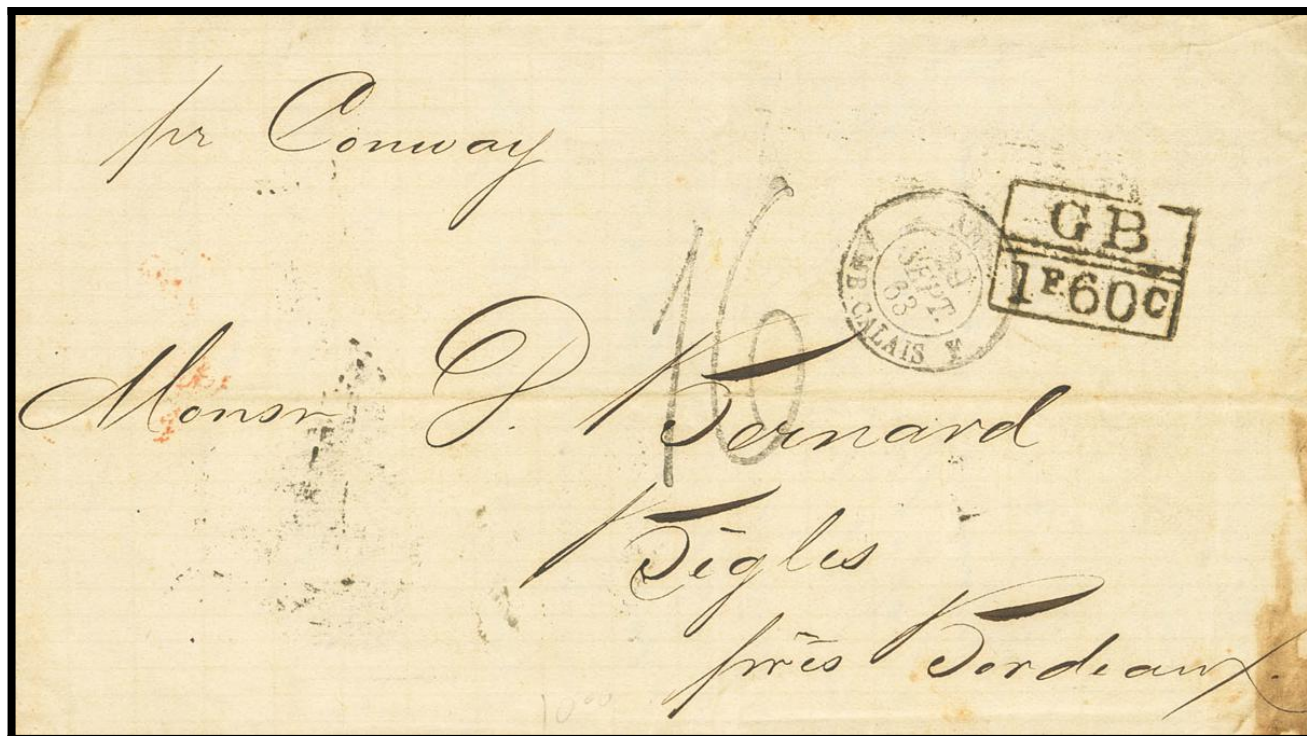 pr Conway
GB
1F60C
SEPT.
63
AMB. CALAIS
16
Monsr P. Bernard
Bègles
près Bordeaux.